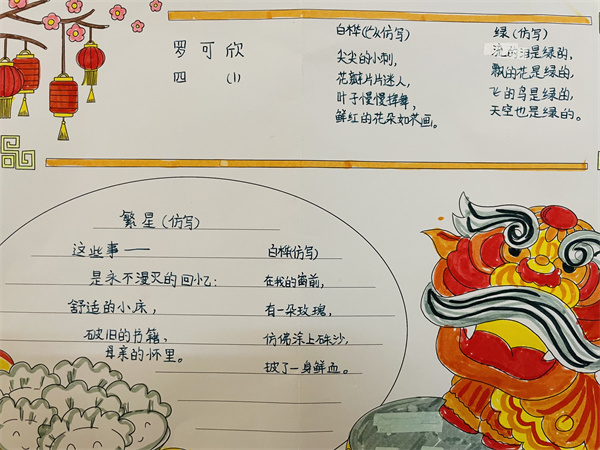 罗可欣
四 (1)
白桦(仿写)
尖尖的小刺,
花瓣片片迷人,
叶子慢慢挥舞,
鲜红的花朵如茶画。
绿(仿写)
的是绿的,
飘的花是绿的,
飞的鸟是绿的,
天空也是绿的。
繁星(仿写)
这些事——
是永不漫灭的回忆:
舒适的小床,
破旧的书籍、
母亲的怀里。
白桦(仿写)
在我的窗前,
有一朵玫瑰,
仿佛涂上朱沙,
披了一身鲜血。